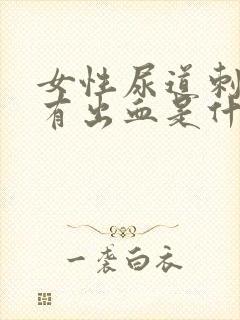 女性尿道刺
有出血是什
一袭白衣